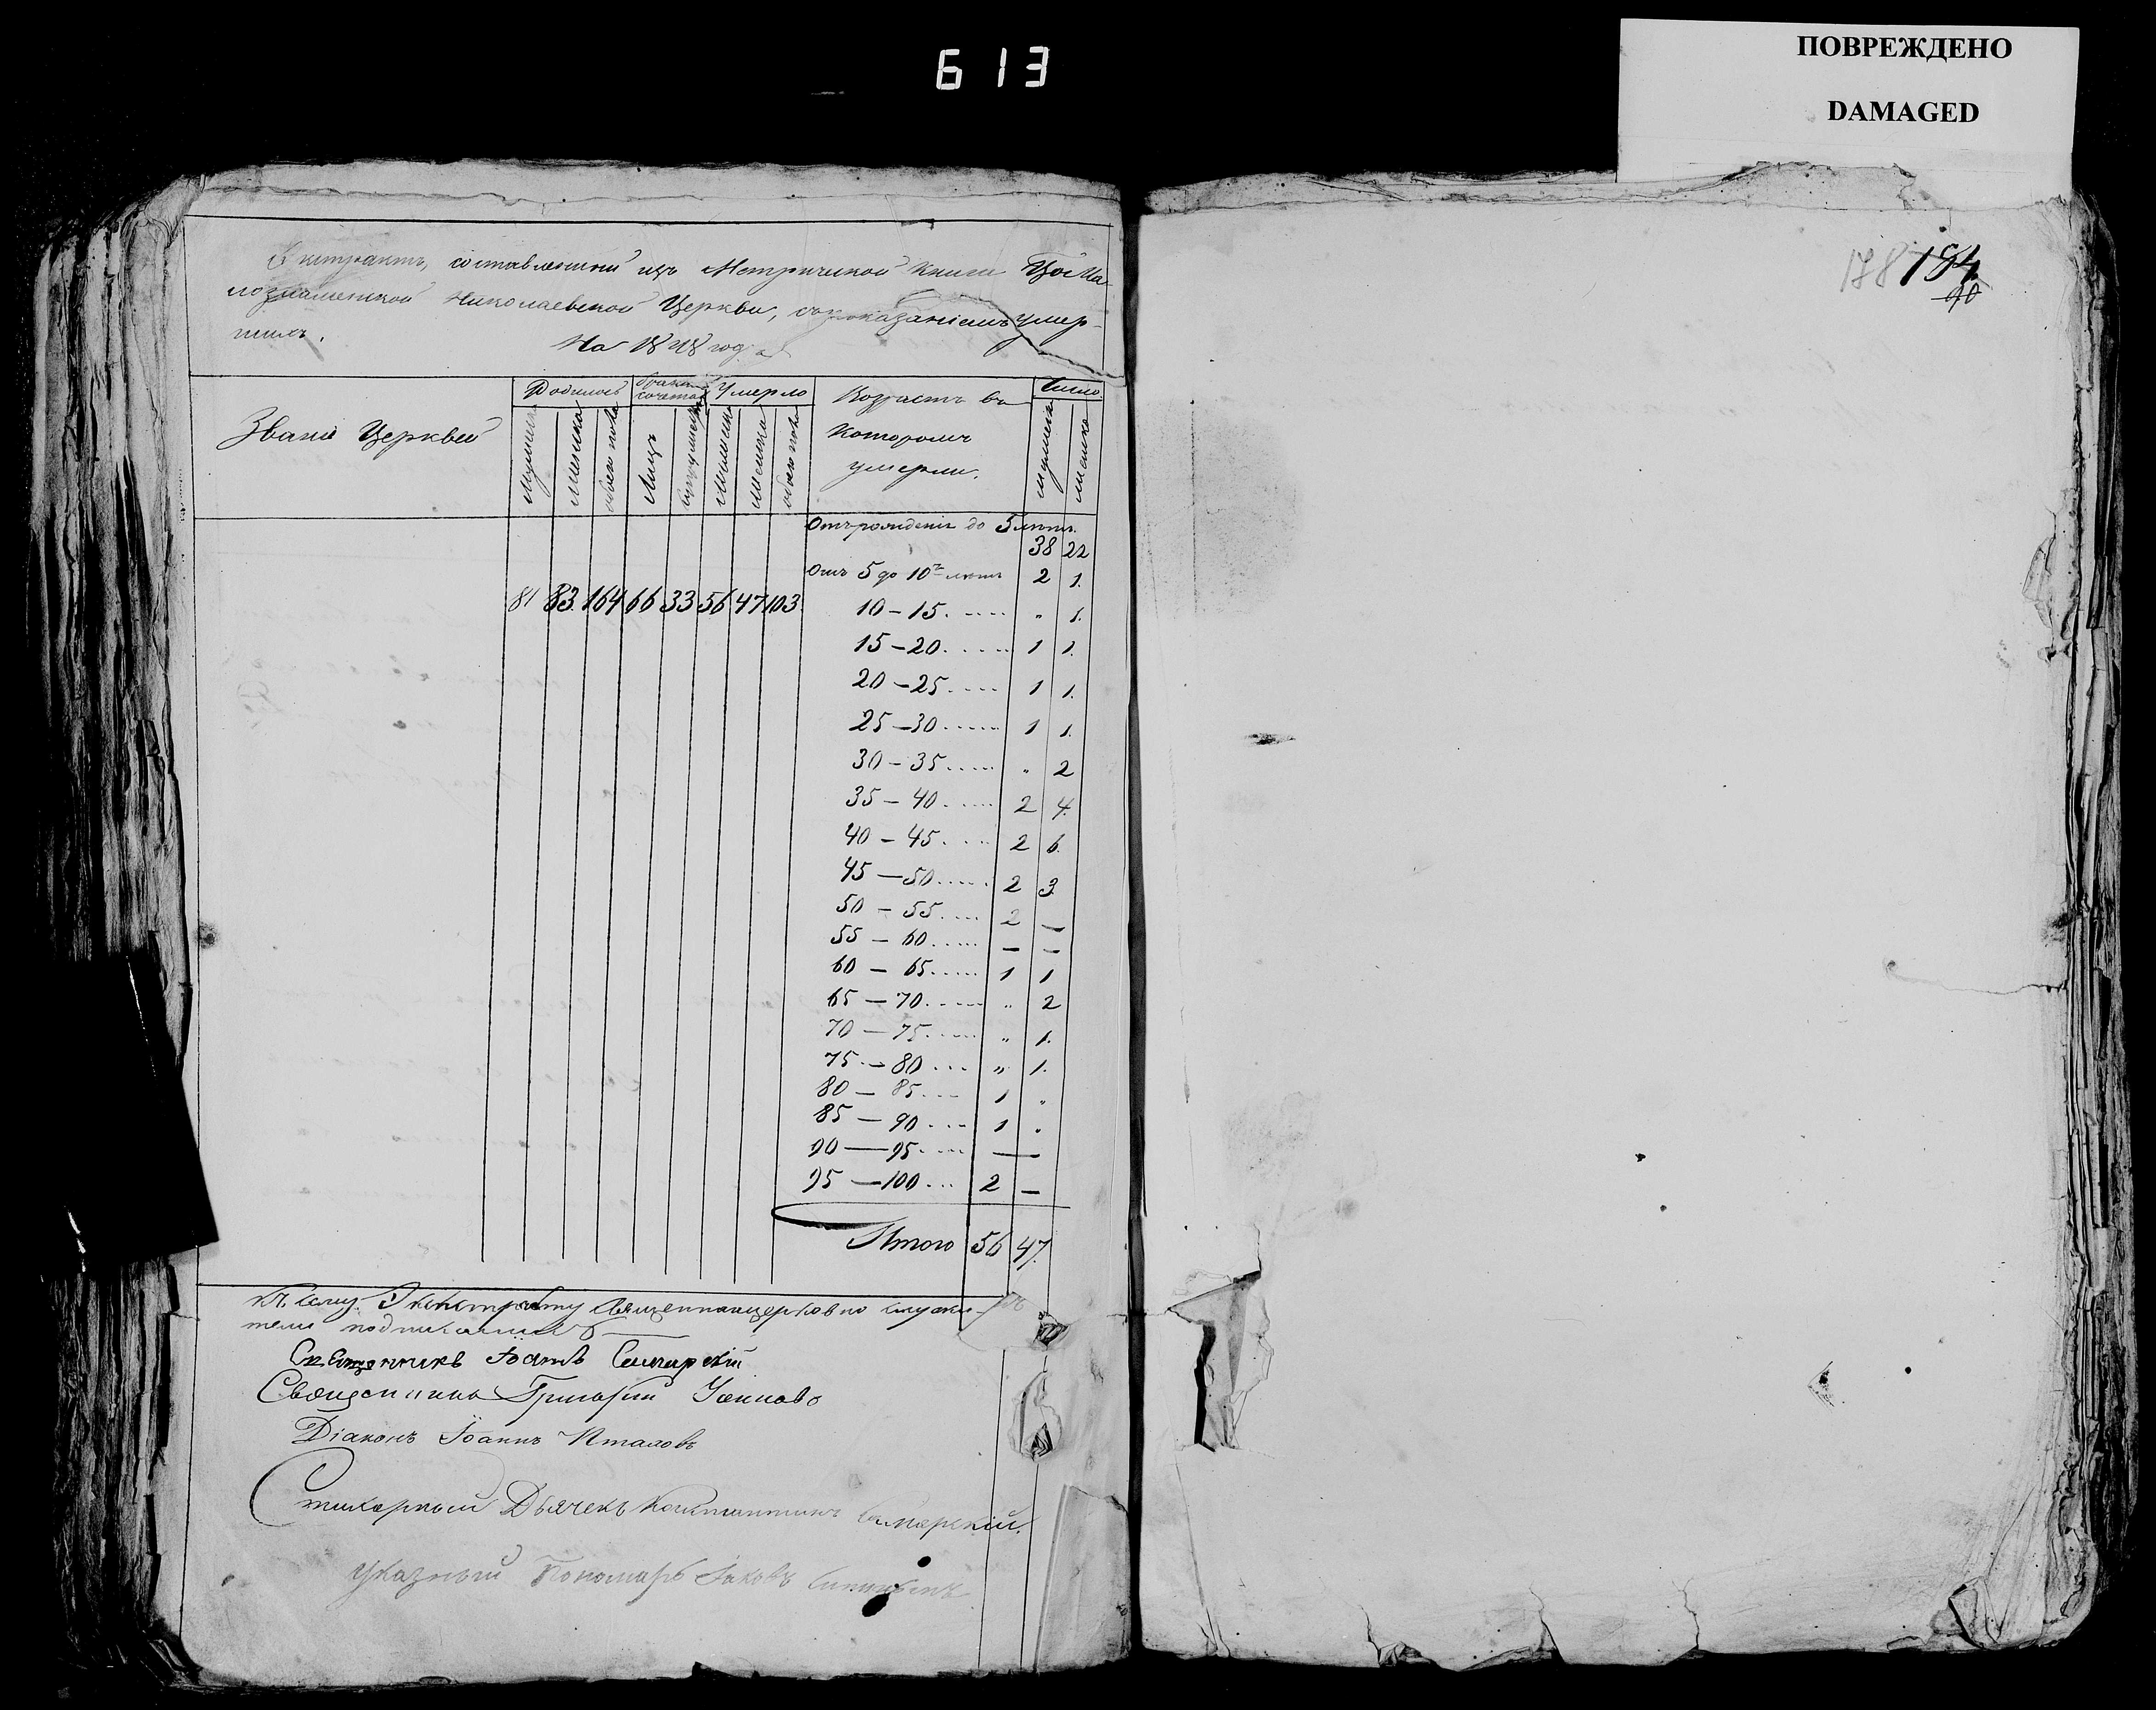 613
ПОВРЕЖДЕНО
DAMAGED
178 184
90
Экстрактъ, составленный изъ Метрической книги Цой Ма-
лознаменской Николаевской Церкви, съ показаніемъ умер-
шихъ.
На 1848 годъ
Званіе Церквей
Родилось
Умерло
Возрастъ въ
которомъ
умерли.
Число
мужеска
женска
обоего пола
Лицъ
мужеска
женска
обоего пола
мужеска
женска
Отъ рожденія до 5 лѣтъ.
38 22
Отъ 5 до 10ъ лѣтъ 2 1.
81 83. 164 66 33 56 47 103.
10 – 15. ..... „ 1.
15 – 20. ..... 1 1.
20 – 25. .... 1 1.
25 – 30 ...... 1 1.
30 – 35. .... „ 2
35 – 40. .... 2 4.
40 – 45. .... 2 6.
45 – 50. .... 2 3.
50 – 55. .... 2 —
55 – 60. .... — —
60 – 65. .... 1 1
65 – 70. .... „ 2
70 – 75. .... „ 1.
75 – 80 .... „ 1.
80 – 85. ... 1 „
85 – 90 .... 1 „
90 – 95. .... —
95 – 100 ... 2 —
Итого 56 47.
Къ сему Экстракту Священноцерковно служи-
тели подписались
Священникъ Іоаннъ Самарскій
Священникъ Григорій
Діаконъ Іоаннъ
Стихарный Дьячекъ Константинъ Самарскій.
Указный Пономарь Іаковъ